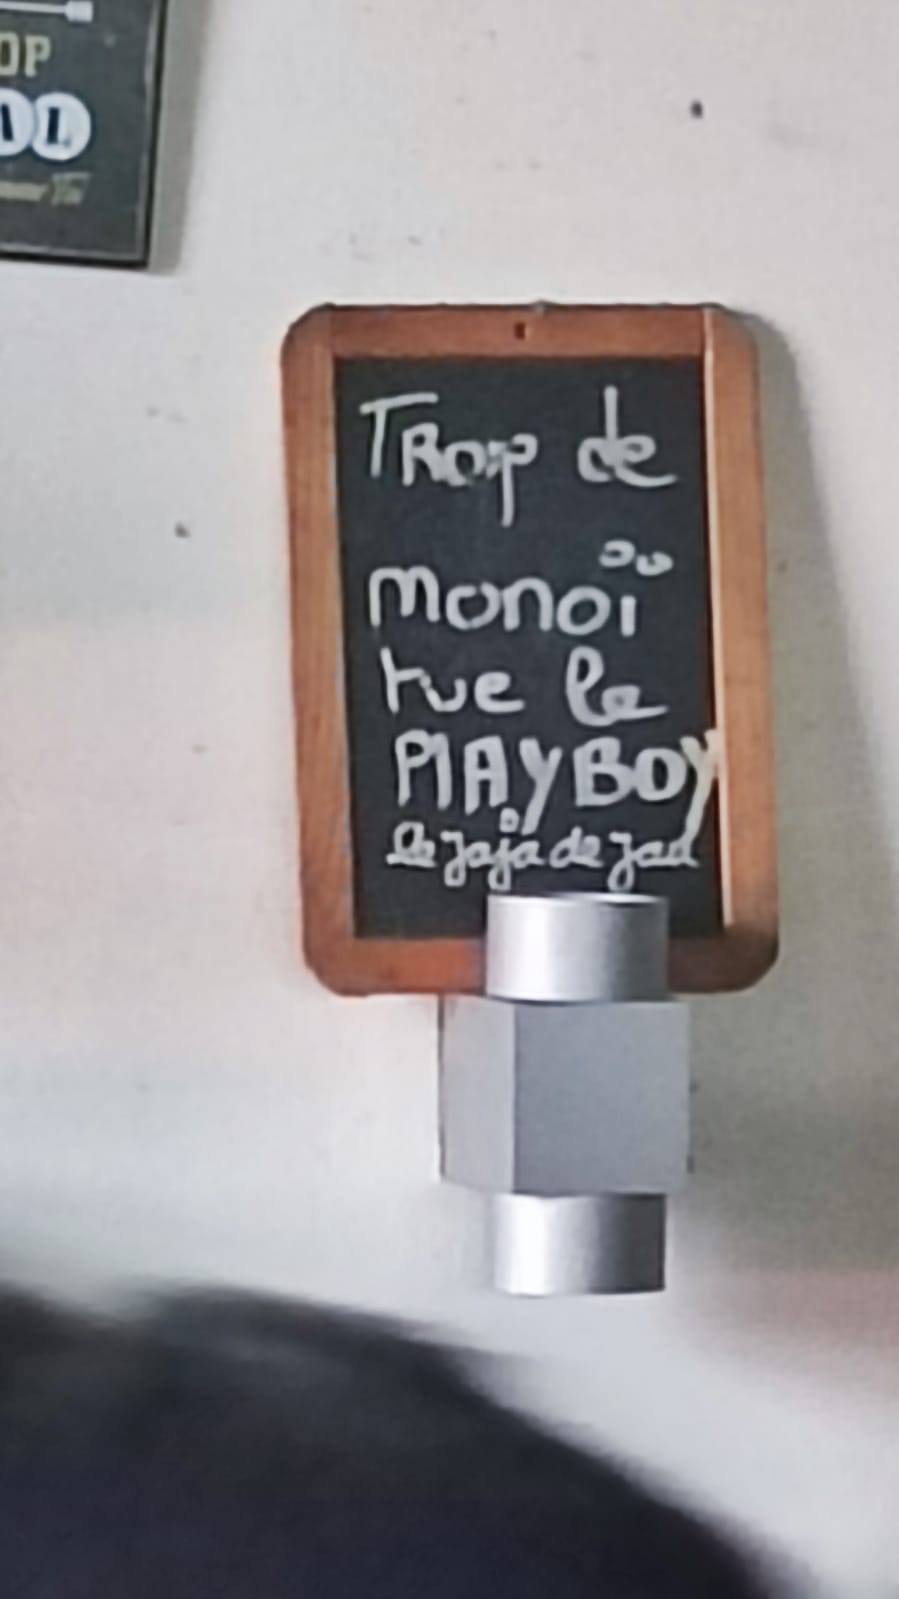 OP
AL
TRop de
monoï
tue le
PlAyBOY
le jaja de jau